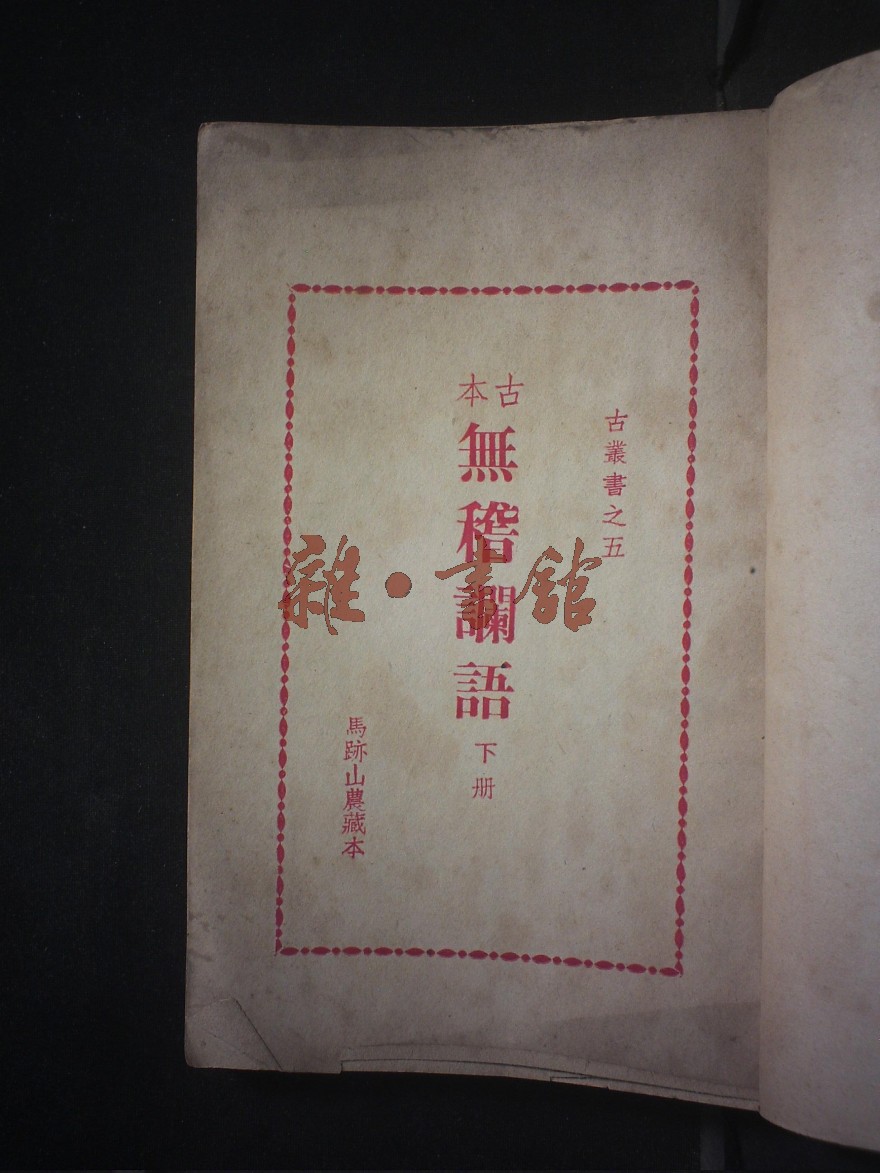 古叢書之五
古本
無稽讕語
下册
馬跡山農藏本
雜·書館